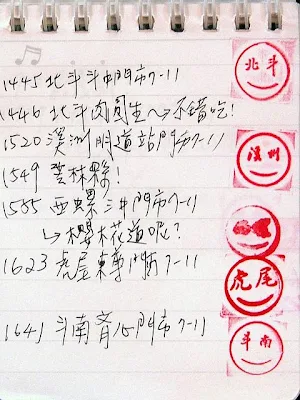 1445 北斗斗中門市7-11
北斗
1446 北斗肉圓生~→不錯吃!
1520 溪州明道站門市7-11
溪州
1549 雲林縣!
1585 西螺 門市7-11
↳櫻花道呢?
1623 虎尾東 門市7-11
虎尾
1641 斗南 門市7-11
斗南